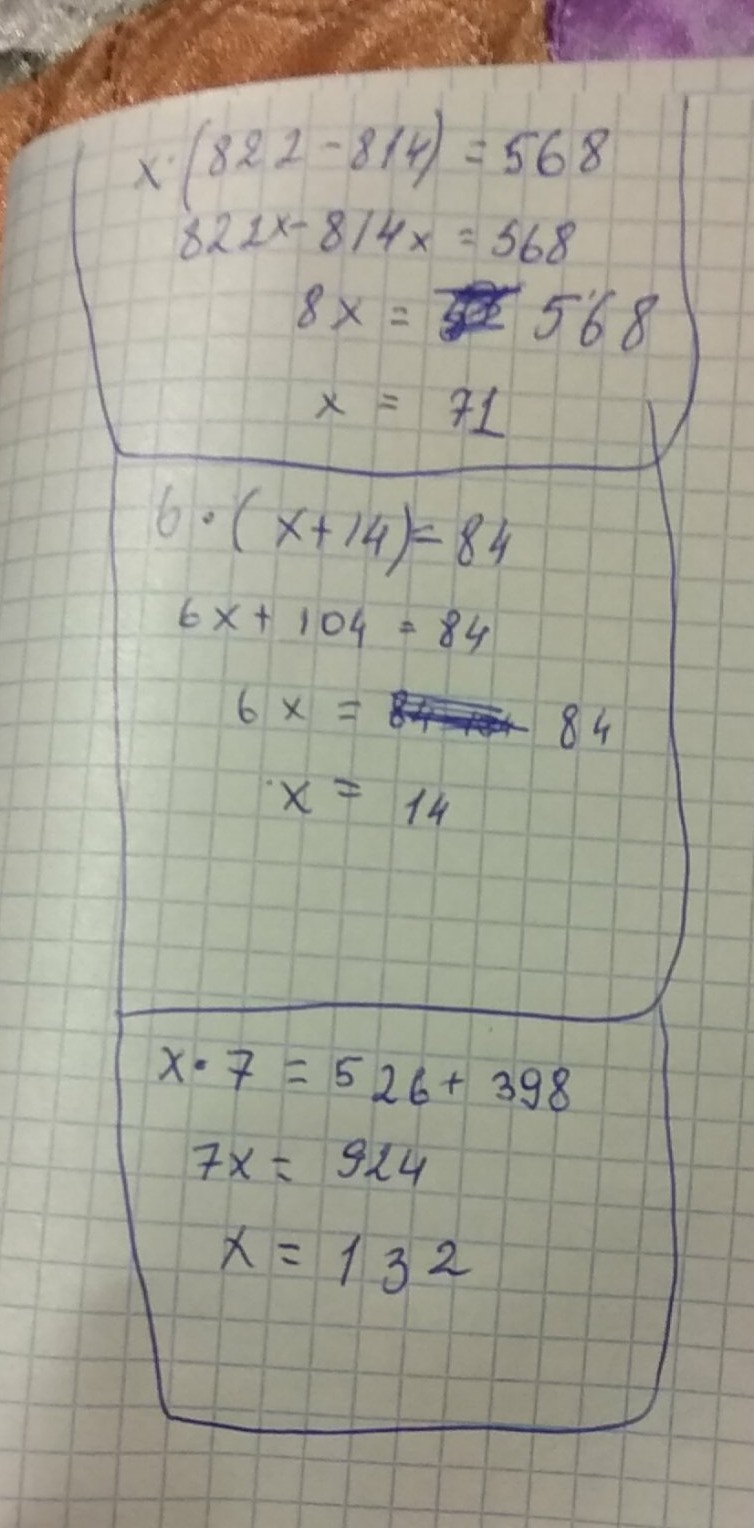 x·(822-814)=568
822x-814x=568
8x= 568
x = 71
6·(x+14)=84
6x+104=84
6x= 84
x= 14
x·7=526+398
7x=924
x=132